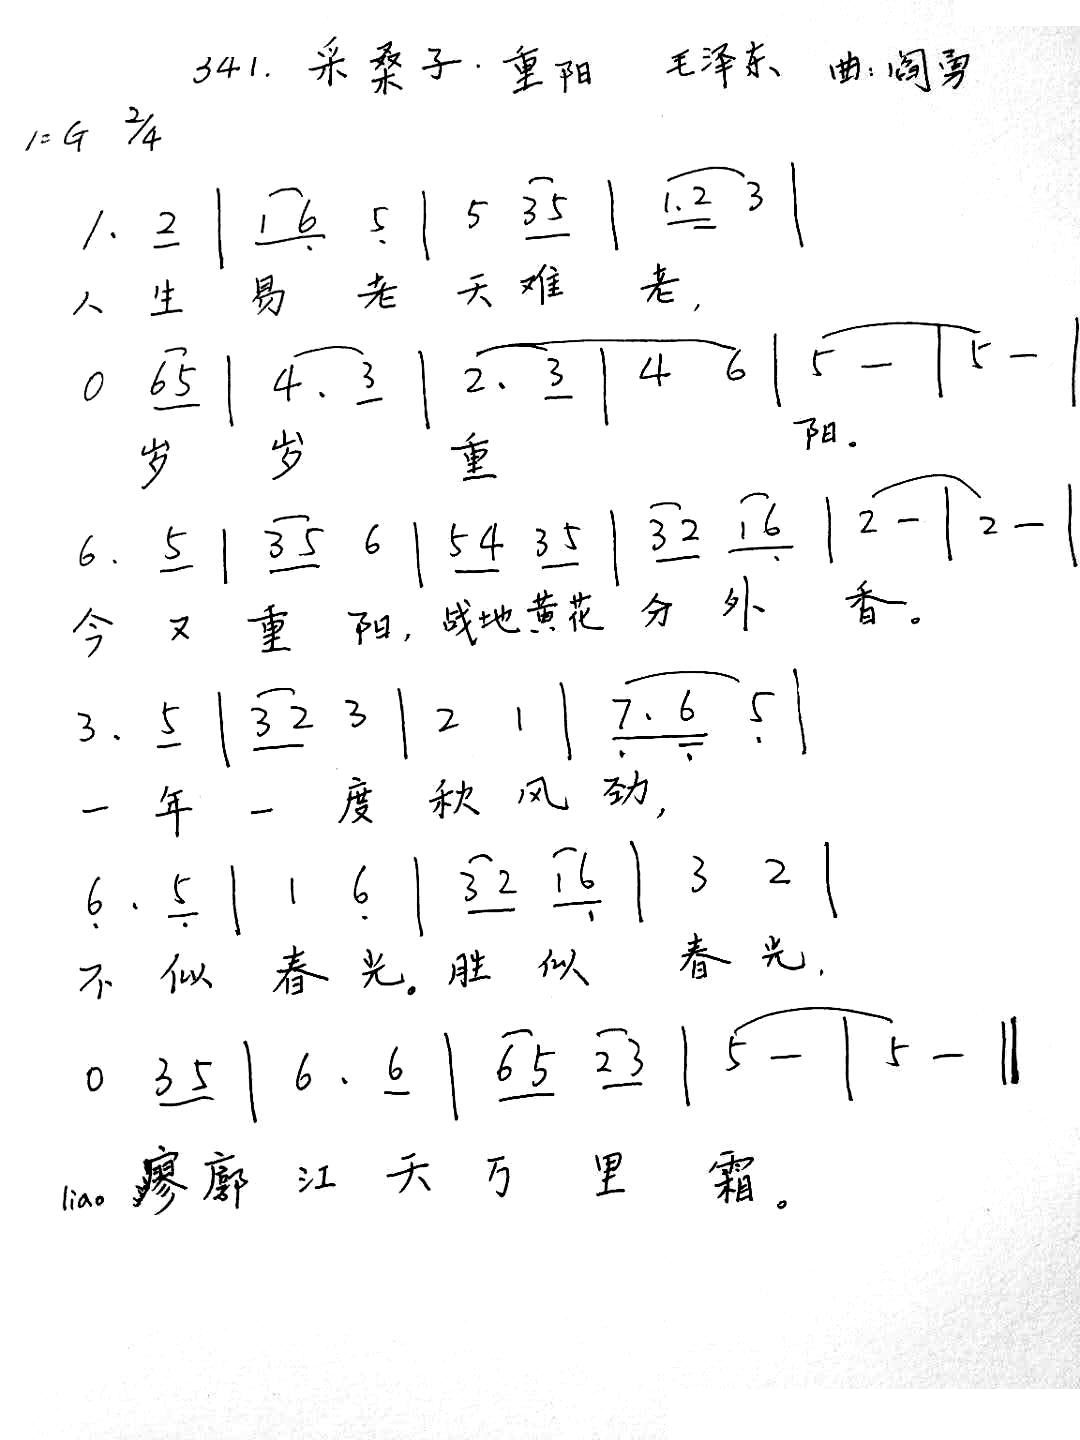 341. 采桑子·重阳 毛泽东 曲:阎勇
1=G 2/4
1. 2 | 1 6 5 | 5 35 | 1.2 3 |
人生易老天难老,
0 65 | 4. 3 | 2. 3 | 4 6 | 5 - | 5 - |
岁岁重阳。
6. 5 | 35 6 | 54 35 | 32 16 | 2 - | 2 - |
今又重阳,战地黄花分外香。
3. 5 | 32 3 | 2 1 | 7. 6 5 |
一年一度秋风劲,
6. 5 | 1 6 | 32 16 | 3 2 |
不似春光。胜似春光,
0 35 | 6. 6 | 65 23 | 5 - | 5 - ‖
liao 廖廓江天万里霜。